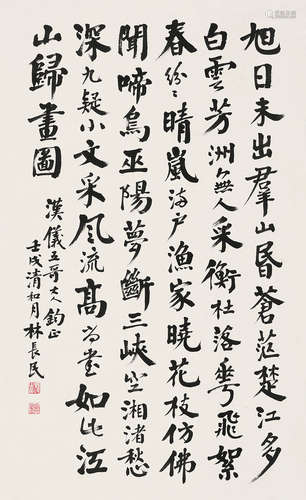 旭日未出羣山昏蒼茫楚江多
白雲芳洲無人采衡杜落華飛絮
春紛〻晴嵐滿戶漁家曉花枝仿佛
聞啼鳥巫陽夢斷三峽空湘渚愁
深九疑小文采風流高尚書如此江
山歸畫圖
漢儀五哥大人鈞正
壬戌清和月林長民